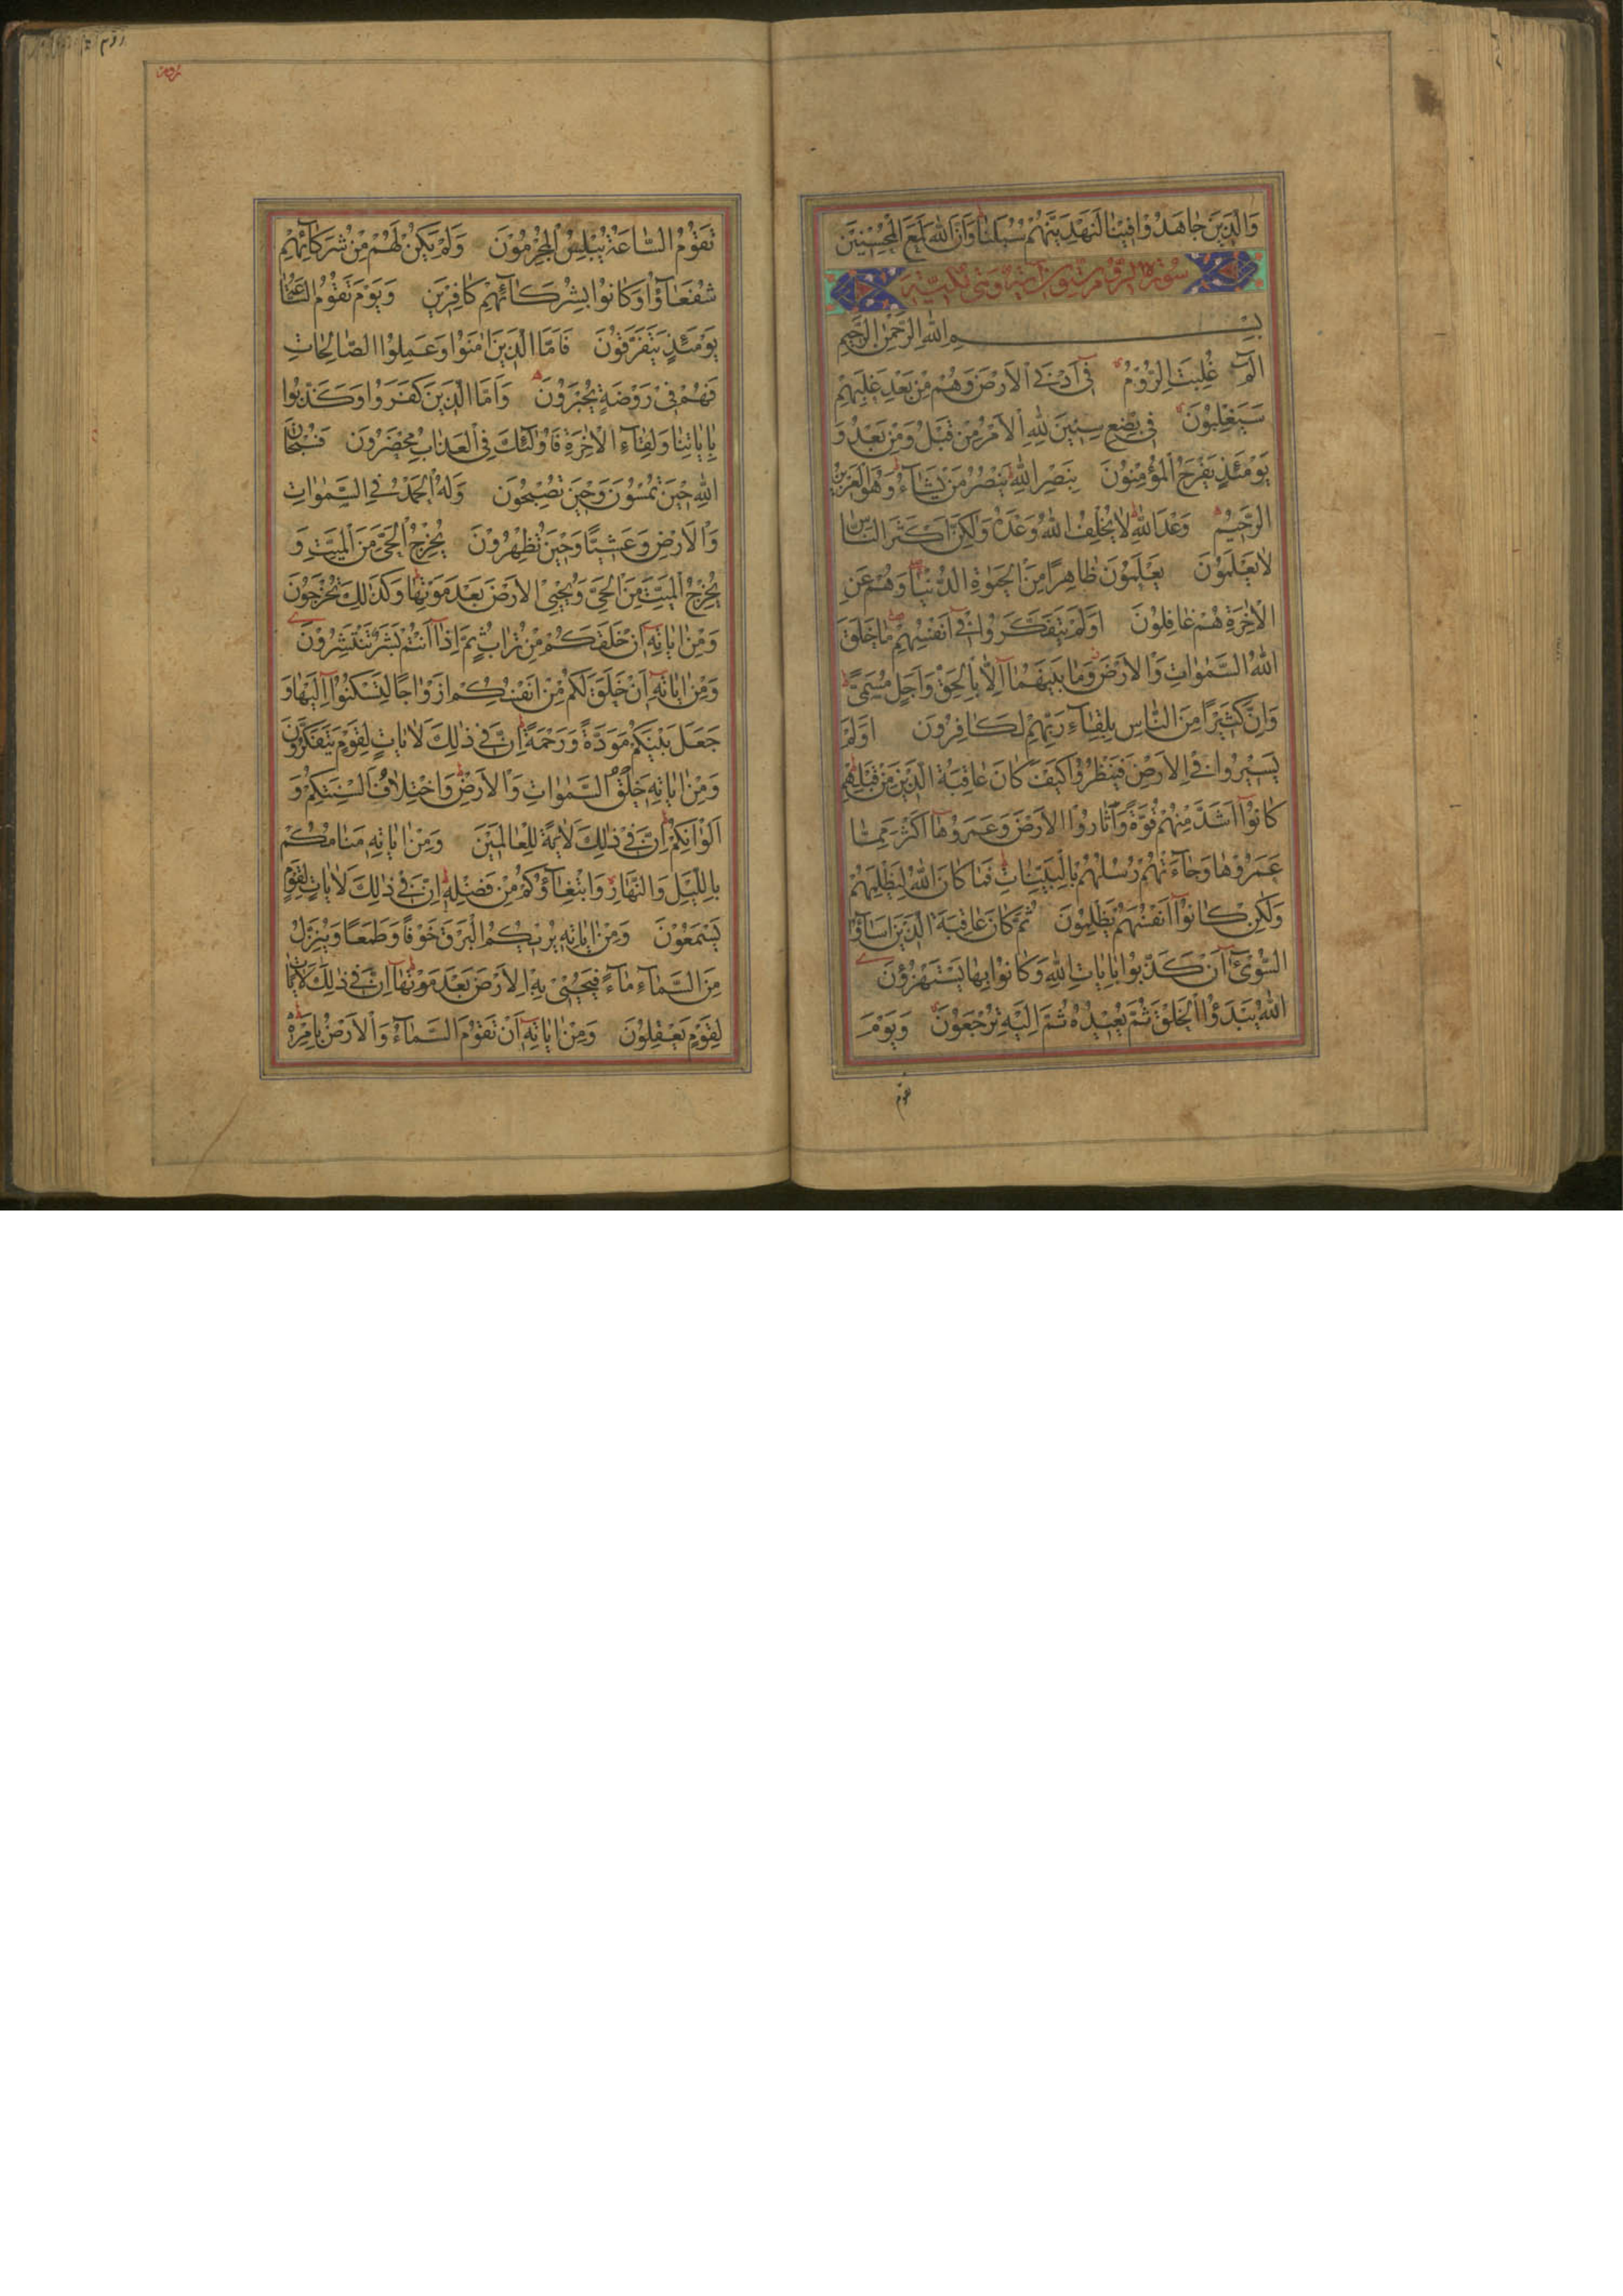 وَالَّذِينَ جَاهَدُوْا فِيْنَا لَنَهْدِيَنَّهُمْ سُبُلَنَا وَاِنَّ اللهَ لَمَعَ الْمُحْسِنِيْنَ
سورة الروم ستون اية وهى مكية
بِسْمِ اللهِ الرَّحْمٰنِ الرَّحِيمِ
الٓمٓ غُلِبَتِ الرُّوْمُ فِىٓ اَدْنَى الْاَرْضِ وَهُمْ مِنْ بَعْدِ غَلَبِهِمْ
سَيَغْلِبُوْنَ فِى بِضْعِ سِنِيْنَ لِلّٰهِ الْاَمْرُ مِنْ قَبْلُ وَمِنْ بَعْدُ وَ
يَوْمَئِذٍ يَفْرَحُ الْمُؤْمِنُوْنَ بِنَصْرِ اللهِ يَنْصُرُ مَنْ يَشَآءُ وَهُوَ الْعَزِيْزُ
الرَّحِيْمُ وَعْدَ اللهِ لَا يُخْلِفُ اللهُ وَعْدَهُ وَلٰكِنَّ اَكْثَرَ النَّاسِ
لَا يَعْلَمُوْنَ يَعْلَمُوْنَ ظَاهِرًا مِنَ الْحَيٰوةِ الدُّنْيَا وَهُمْ عَنِ
الْاٰخِرَةِ هُمْ غَافِلُوْنَ اَوَلَمْ يَتَفَكَّرُوا فِىٓ اَنْفُسِهِمْ مَا خَلَقَ
اللهُ السَّمٰوَاتِ وَالْاَرْضَ وَمَا بَيْنَهُمَآ اِلَّا بِالْحَقِّ وَاَجَلٍ مُسَمًّى
وَاِنَّ كَثِيْرًا مِنَ النَّاسِ بِلِقَآءِ رَبِّهِمْ لَكَافِرُوْنَ اَوَلَمْ
يَسِيْرُوا فِى الْاَرْضِ فَيَنْظُرُوْا كَيْفَ كَانَ عَاقِبَةُ الَّذِيْنَ مِنْ قَبْلِهِمْ
كَانُوْآ اَشَدَّ مِنْهُمْ قُوَّةً وَاَثَارُوا الْاَرْضَ وَعَمَرُوْهَآ اَكْثَرَ مِمَّا
عَمَرُوْهَا وَجَآءَتْهُمْ رُسُلُهُمْ بِالْبَيِّنَاتِ فَمَا كَانَ اللهُ لِيَظْلِمَهُمْ
وَلٰكِنْ كَانُوْآ اَنْفُسَهُمْ يَظْلِمُوْنَ ثُمَّ كَانَ عَاقِبَةَ الَّذِيْنَ اَسَآؤُا
السُّوْآىٰ اَنْ كَذَّبُوْا بِاٰيَاتِ اللهِ وَكَانُوْا بِهَا يَسْتَهْزِؤُنَ
اللهُ يَبْدَؤُا الْخَلْقَ ثُمَّ يُعِيْدُهُ ثُمَّ اِلَيْهِ تُرْجَعُوْنَ وَيَوْمَ
تقوم
تَقُوْمُ السَّاعَةُ يُبْلِسُ الْمُجْرِمُوْنَ وَلَمْ يَكُنْ لَهُمْ مِنْ شُرَكَآئِهِمْ
شُفَعَآؤُا وَكَانُوْا بِشُرَكَآئِهِمْ كَافِرِيْنَ وَيَوْمَ تَقُوْمُ السَّاعَةُ
يَوْمَئِذٍ يَتَفَرَّقُوْنَ فَاَمَّا الَّذِيْنَ اٰمَنُوْا وَعَمِلُوْا الصَّالِحَاتِ
فَهُمْ فِى رَوْضَةٍ يُحْبَرُوْنَ وَاَمَّا الَّذِيْنَ كَفَرُوْا وَكَذَّبُوْا
بِاٰيَاتِنَا وَلِقَآءِ الْاٰخِرَةِ فَاُولٰٓئِكَ فِى الْعَذَابِ مُحْضَرُوْنَ فَسُبْحَانَ
اللهِ حِيْنَ تُمْسُوْنَ وَحِيْنَ تُصْبِحُوْنَ وَلَهُ الْحَمْدُ فِى السَّمٰوَاتِ
وَالْاَرْضِ وَعَشِيًّا وَحِيْنَ تُظْهِرُوْنَ يُخْرِجُ الْحَىَّ مِنَ الْمَيِّتِ وَ
يُخْرِجُ الْمَيِّتَ مِنَ الْحَىِّ وَيُحْيِى الْاَرْضَ بَعْدَ مَوْتِهَا وَكَذٰلِكَ تُخْرَجُوْنَ
وَمِنْ اٰيَاتِهِٓ اَنْ خَلَقَكُمْ مِنْ تُرَابٍ ثُمَّ اِذَآ اَنْتُمْ بَشَرٌ تَنْتَشِرُوْنَ
وَمِنْ اٰيَاتِهِٓ اَنْ خَلَقَ لَكُمْ مِنْ اَنْفُسِكُمْ اَزْوَاجًا لِتَسْكُنُوْآ اِلَيْهَا وَ
جَعَلَ بَيْنَكُمْ مَوَدَّةً وَرَحْمَةً اِنَّ فِى ذٰلِكَ لَاٰيَاتٍ لِقَوْمٍ يَتَفَكَّرُوْنَ
وَمِنْ اٰيَاتِهِ خَلْقُ السَّمٰوَاتِ وَالْاَرْضِ وَاخْتِلَافُ اَلْسِنَتِكُمْ وَ
اَلْوَانِكُمْ اِنَّ فِى ذٰلِكَ لَاٰيَةً لِلْعَالَمِيْنَ وَمِنْ اٰيَاتِهِ مَنَامُكُمْ
بِاللَّيْلِ وَالنَّهَارِ وَابْتِغَآؤُكُمْ مِنْ فَضْلِهِ اِنَّ فِى ذٰلِكَ لَاٰيَاتٍ لِقَوْمٍ
يَسْمَعُوْنَ وَمِنْ اٰيَاتِهِ يُرِيْكُمُ الْبَرْقَ خَوْفًا وَطَمَعًا وَيُنَزِّلُ
مِنَ السَّمَآءِ مَآءً فَيُحْيِى بِهِ الْاَرْضَ بَعْدَ مَوْتِهَآ اِنَّ فِى ذٰلِكَ لَاٰيَاتٍ
لِقَوْمٍ يَعْقِلُوْنَ وَمِنْ اٰيَاتِهِٓ اَنْ تَقُوْمَ السَّمَآءُ وَالْاَرْضُ بِاَمْرِهِ